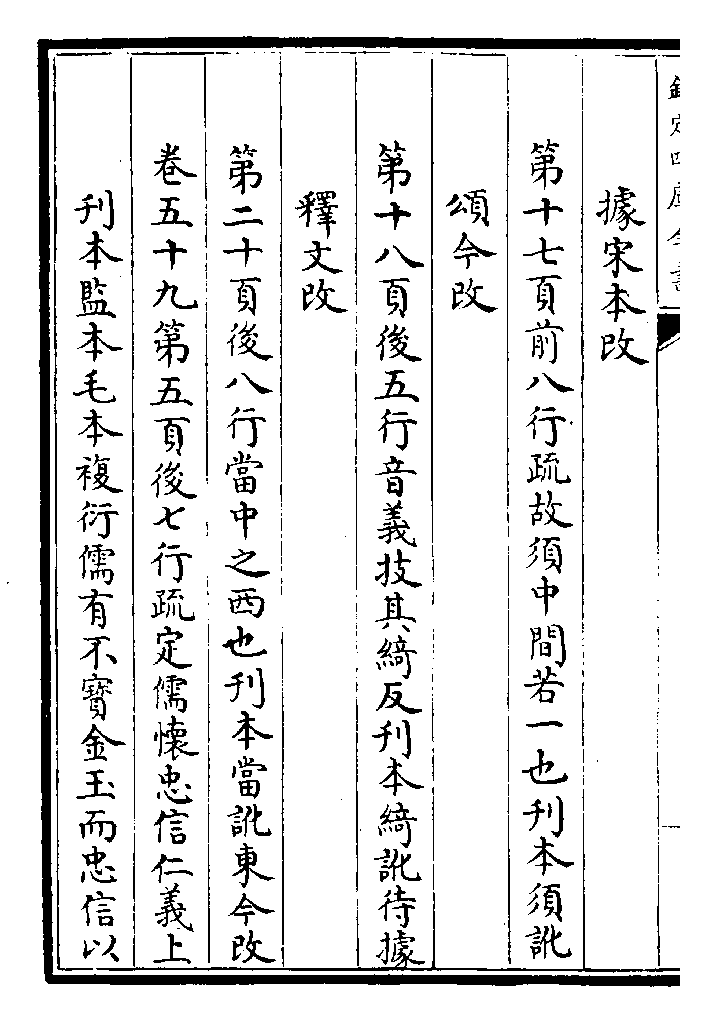 欽定四庫全書
據宋本改
第十七頁前八行疏故須中間若一也刊本須訛
頌今改
第十八頁後五行音義技其綺反刊本綺訛待據
釋文改
第二十頁後八行當中之西也刊本當訛東今改
卷五十九第五頁後七行疏定儒懷忠信仁義上
刊本監本毛本複衍儒有不寳金玉而忠信以